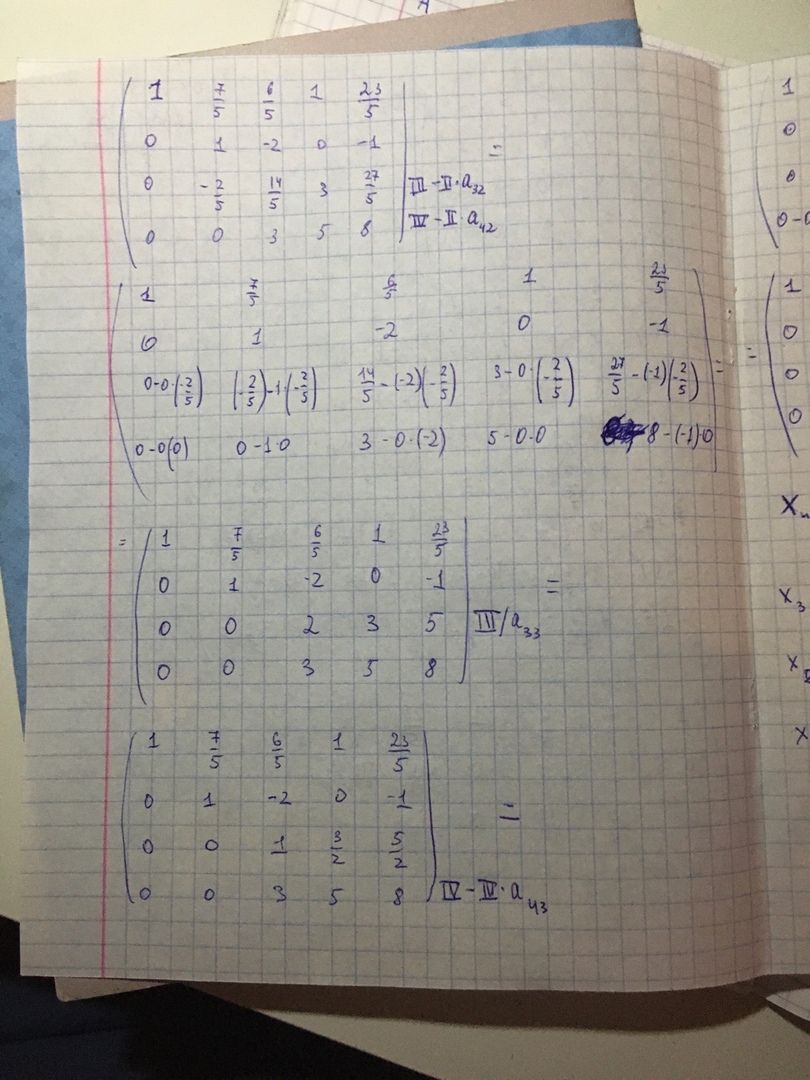 1 7/5 6/5 1 23/5
0 1 -2 0 -1 =
0 -2/5 14/5 3 27/5 III-II·a₃₂
0 0 3 5 8 IV-II·a₄₂
1 7/5 6/5 1 23/5
0 1 -2 0 -1
0-0·(-2/5) (-2/5)-1·(-2/5) 14/5-(-2)(-2/5) 3-0·(-2/5) 27/5-(-1)(-2/5) =
0-0(0) 0-1·0 3-0·(-2) 5-0·0 8-(-1)·0
= 1 7/5 6/5 1 23/5
0 1 -2 0 -1 =
0 0 2 3 5 III/a₃₃
0 0 3 5 8
1 7/5 6/5 1 23/5
0 1 -2 0 -1 =
0 0 1 3/2 5/2
0 0 3 5 8 IV-IV·a₄₃
1
0
0
0-0
1
= 0
0
0
X
X₃
X
X